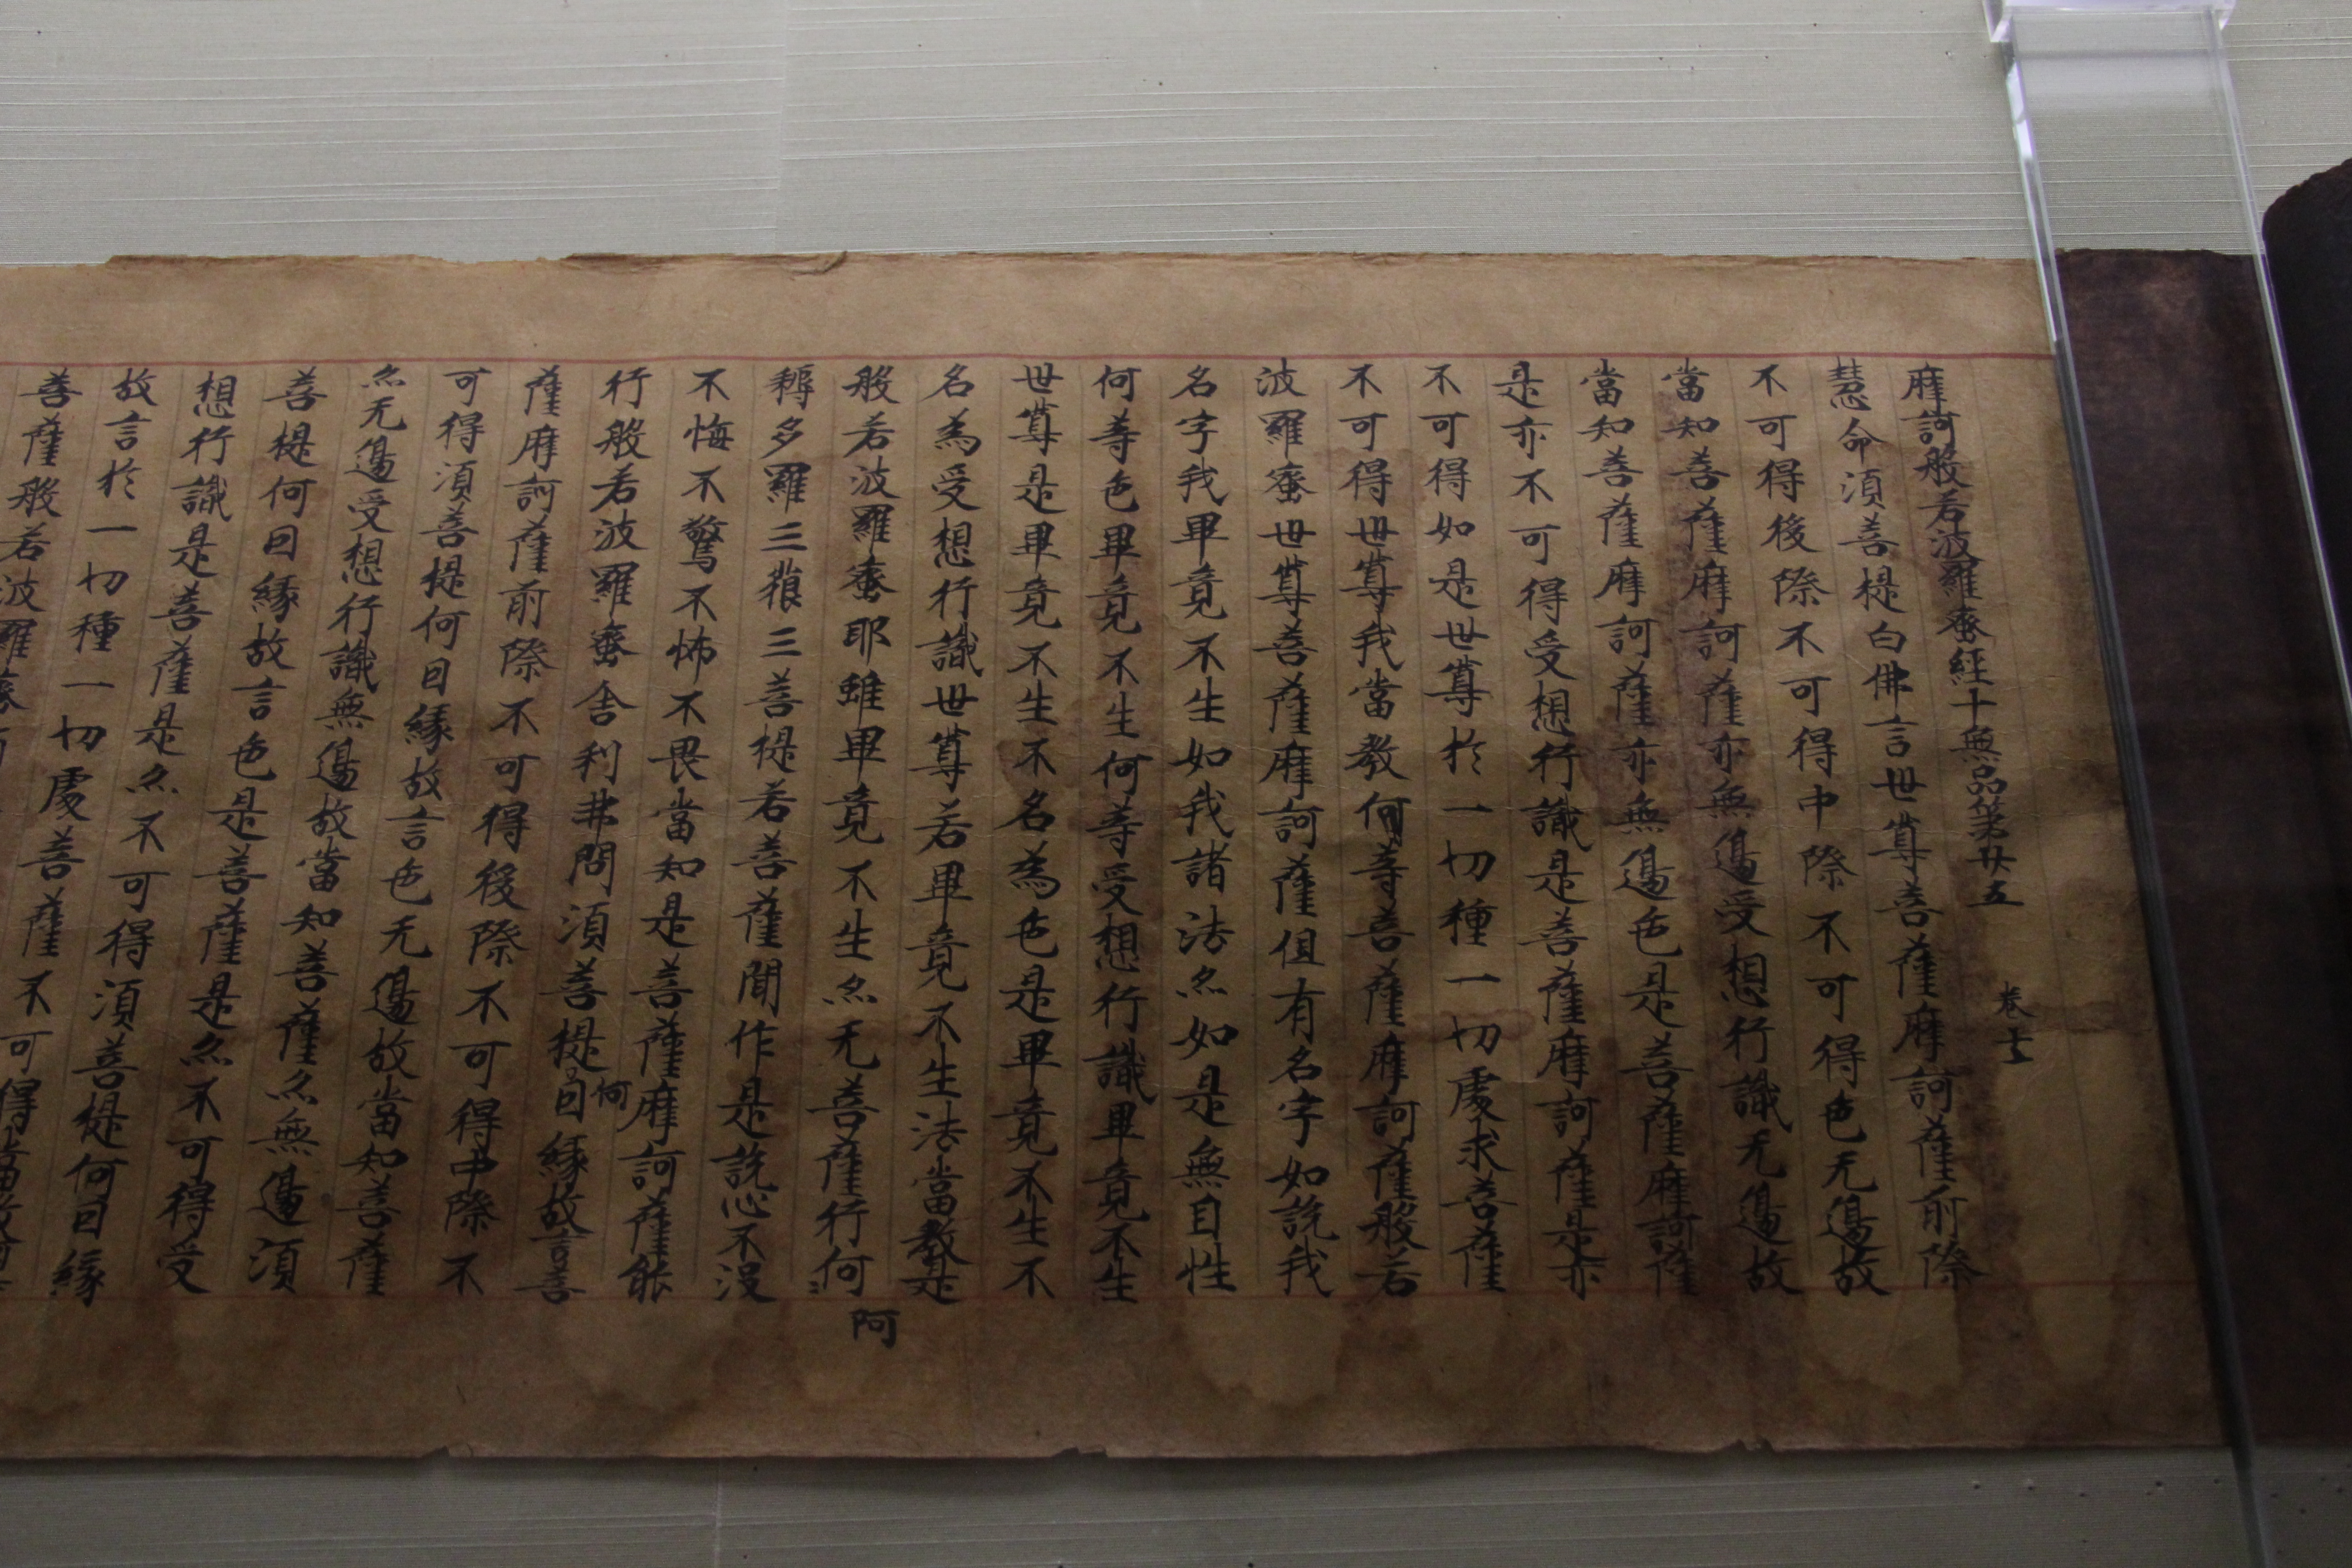 摩訶般若波羅蜜經十無品第廿五 卷
慧命須菩提白佛言世尊菩薩摩訶薩前際
不可得後際不可得中際不可得色无邊故
當知菩薩摩訶薩亦無邊受想行識无邊故
當知菩薩摩訶薩亦無邊色是菩薩摩訶薩
是亦不可得受想行識是菩薩摩訶薩是亦
不可得如是世尊於一切種一切處求菩薩
不可得世尊我當教何等菩薩摩訶薩般若
波羅蜜世尊菩薩摩訶薩但有名字如說我
名字我畢竟不生如我諸法尒如是無自性
何等色畢竟不生何等受想行識畢竟不生
世尊是畢竟不生不名為色是畢竟不生不
名為受想行識世尊若畢竟不生法當教是
般若波羅蜜耶離畢竟不生尒无菩薩行何
阿
耨多羅三藐三菩提若菩薩聞作是說心不沒
不悔不驚不怖不畏當知是菩薩摩訶薩能
行般若波羅蜜舍利弗問須菩提何因緣故言菩
薩摩訶薩前際不可得後際不可得中際不
可得須菩提何因緣故言色无邊故當知菩薩
尒无邊受想行識無邊故當知菩薩尒無邊須
菩提何因緣故言色是菩薩是尒不可得受
想行識是菩薩是尒不可得須菩提何因緣
故言於一切種一切處菩薩不可得
菩薩般若波羅蜜